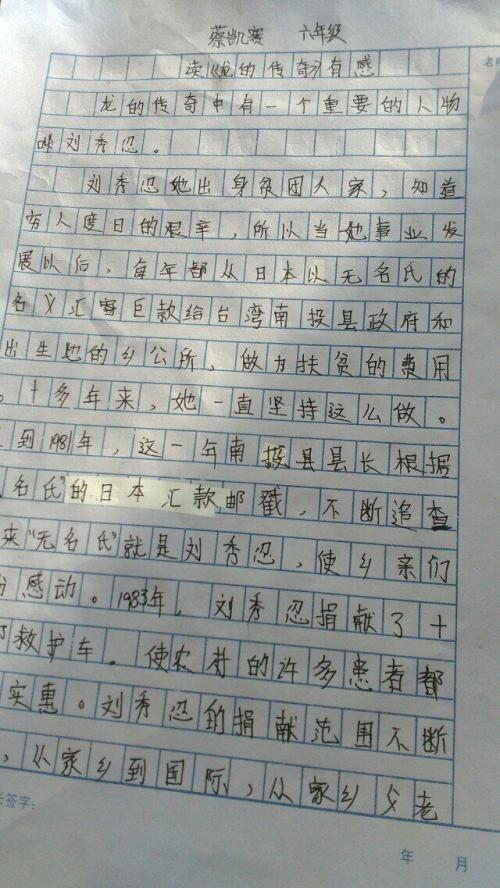 蔡凯赛 六年级
读《龙的传奇》有感
龙的传奇中有一个重要的人物
叫刘秀忍。
刘秀忍她出身贫困人家，知道
穷人度日的艰辛，所以当她事业发
展以后，每年都从日本以无名氏的
名义汇寄巨款给台湾南投县政府和
出生地的乡公所，做为扶贫的费用
。十多年来，她一直坚持这么做。
到1981年，这一年南投县县长根据
名氏”的日本汇款邮戳，不断追查
来“无名氏”就是刘秀忍，使乡亲们
分感动。1983年，刘秀忍捐献了十
救护车。使农村的许多患者都
实惠。刘秀忍的捐献范围不断
，从家乡到国际，从家乡父老
长签字：
年 月